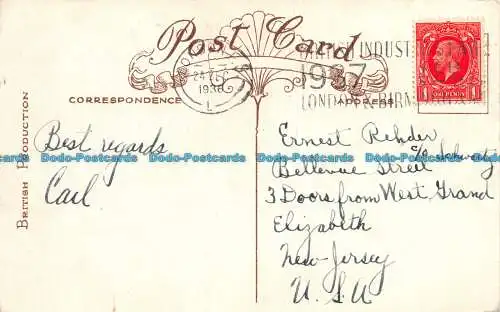 Post Card
BRITISH INDUST
1937
LONDON & BIRM
24
1936
1
ONE PENNY
CORRESPONDENCE
ADDRESS
BRITISH PRODUCTION
Best regards
Carl
Ernest Rehder
c/o
Bellevue Street
3 Doors from West Grand
Elizabeth
New Jersey
U.S.A
Dodo-Postcards Dodo-Postcards Dodo-Postcards Dodo-Postcards Dodo-Postcards